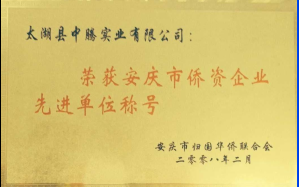 太湖县中腾实业有限公司：
荣获安庆市侨资企业
先进单位称号
安庆市归国华侨联合会
二零零八年二月